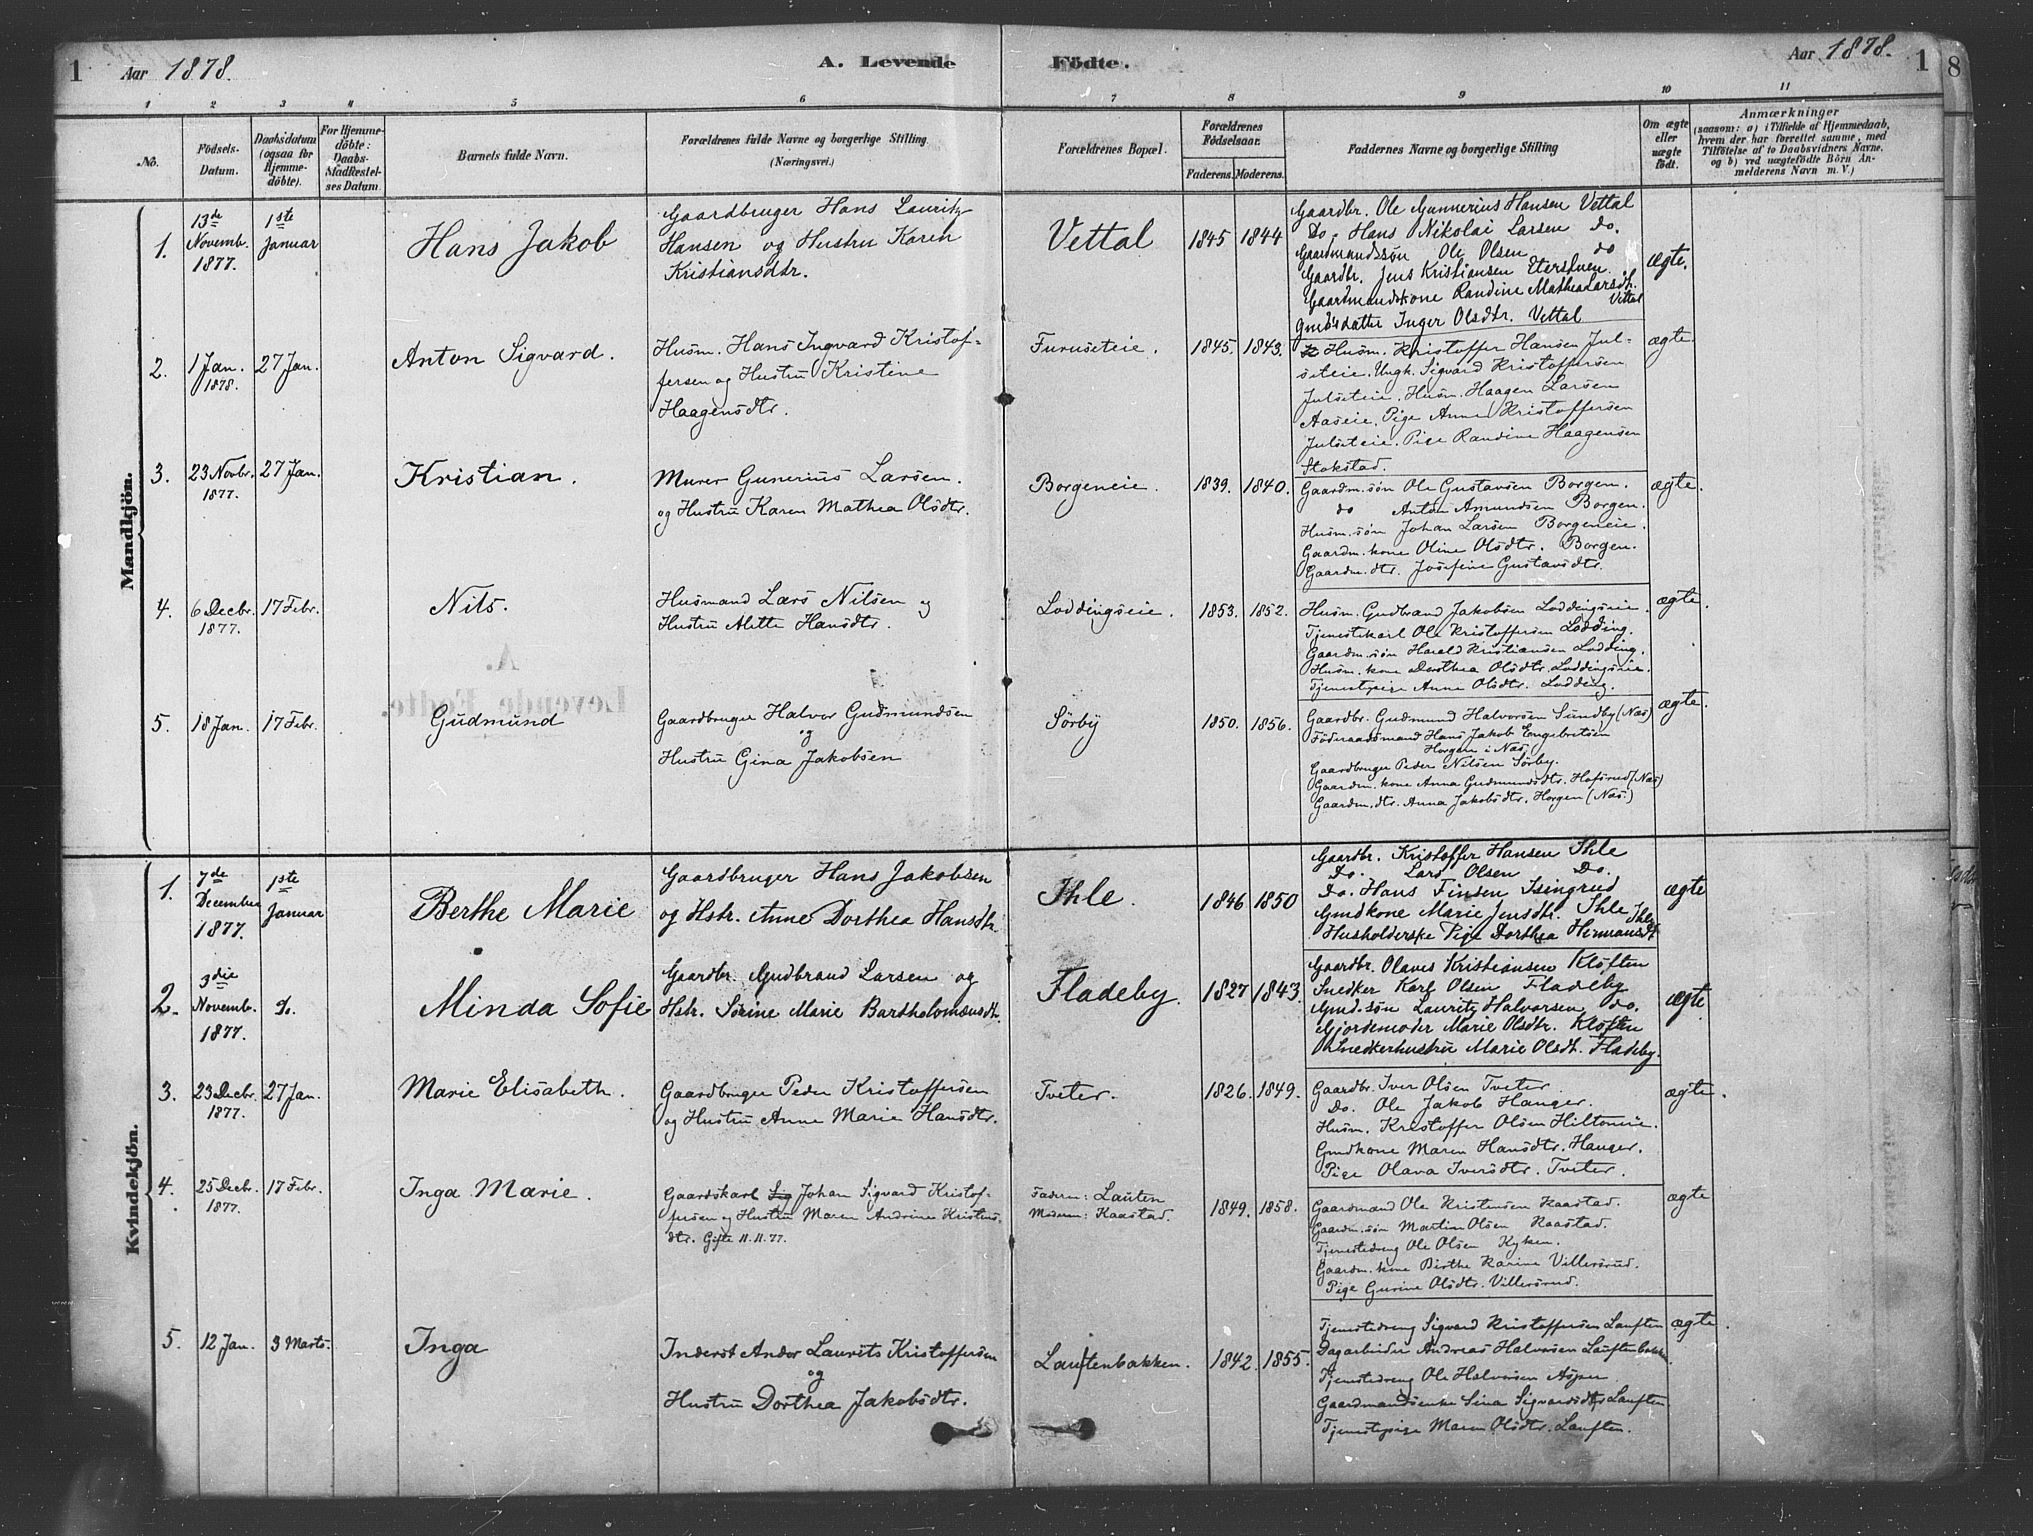 1 Aar 1878. A. Levende Födte. Aar 1878. 1 8
1 2 3 4 5 6 7 8 9 10 11
No.
Födsels-
Datum.
Daabsdatum
(ogsaa for
Hjemme-
döbte).
For Hjemme-
döbte:
Daabs-
Stadfæstel-
ses Datum
Barnets fulde Navn.
Forældrenes fulde Navne og borgerlige Stilling
(Næringsvei.)
Forældrenes Bopæl.
Forældrenes
Födselsaar.
Faderens. Moderens.
Faddernes Navne og borgerlige Stilling
Om ægte
eller
uægte
födt.
Anmærkninger
(saasom: a) i Tilfælde af Hjemmedaab,
hvem der har forrettet samme, med
Tilföielse af to Daabsvidners Navne,
og b) ved uægtefödte Börn An-
melderens Navn m. V.)
Mandkjön.
1.
13de
Novemb.
1877.
1ste
Januar
Hans Jakob
Gaardbruger Hans Lauritz
Hansen og Hustru Karen
Kristiansdtr.
Vettal
1845 1844
Gaardbr. Ole Gunnerius Hansen Vettal
Do. Hans Nikolai Larsen Do.
Gaardmandssön Ole Olsen do
Gaardbr. Jens Kristiansen
Gaardmandskone Randine Mathea Larsdt.
Vettal
Gmdsdatter Inger Olsdtr. Vettal
ægte.
2.
1 Jan.
1878.
27 Jan.
Anton Sigvard.
Husm. Hans Ingvard Kristof-
fersen og Hustru Kristine
Haagensdtr.
Furuseteie.
1845. 1843.
Husm. Kristoffer Hansen Jul-
seteie. Ungk. Sigvard Kristoffersen
Julseteie. Husm. Haagen Larsen
Aaseie. Pige Anne Kristoffersen
Julseteie. Pige Randine Haagensen
Stokstad.
ægte.
3.
23 Novbr.
1877.
27 Jan.
Kristian.
Murer Gunerius Larsen.
og Hustru Karen Mathea Olsdtr.
Borgeneie.
1839. 1840.
Gaardm.sön Ole Gustavsen Borgen.
do Anton Amundsen Borgen.
Husm.sön Johan Larsen Borgeneie.
Gaardm.kone Oline Olsdtr. Borgen.
Gaardm.dtr. Josefine Gustavsdtr.
ægte.
4.
6 Decbr.
1877.
17 Febr.
Nils.
Husmand Lars Nilsen og
Hustru Alette Hansdtr.
Loddingseie.
1853. 1852.
Husm. Gudbrand Jakobsen Loddingseie.
Tjenestekarl Ole Kristoffersen Lodding.
Gaardm.sön Harald Kristiansen Lodding.
Husm.kone Dorthea Olsdtr. Loddingseie.
Tjenestepige Anne Olsdtr. Lodding.
ægte.
5.
18 Jan.
17 Febr.
Gudmund
Gaardbruger Halvor Gudmundsen
og
Hustru Gina Jakobsen
Sörby
1850. 1856.
Gaardbr. Gudmund Halvorsen Sundby (Næs)
Föderaadsmand Hans Jakob Engebretsen
Horgen i Næs.
Gaardbruger Peder Nilsen Sörby.
Gaardm.kone Anna Gudmundsdtr. Hofsrud (Næs)
Gaardm.dtr. Anna Jakobsdtr. Horgen (Næs.)
ægte.
A.
Levende Födte.
Kvindekjön.
1.
7de
December
1877.
1ste
Januar
Berthe Marie
Gaardbruger Hans Jakobsen
og Hstr. Anne Dorthea Hansdtr.
Ihle.
1846 1850
Gaardbr. Kristoffer Hansen Ihle
Do. Lars Olsen Do.
Do. Hans Finsen Isingrud
Gmdkone Marie Jensdtr. Ihle
Husholderske Pige Dorthea Ihle
ægte
2.
3die
Novemb.
1877.
do.
Minda Sofie
Gaardbr. Gudbrand Larsen og
Hstr. Sörine Marie Bartholomæusdtr.
Fladeby.
1827 1843.
Gaardbr. Olaves Kristiansen Klöften
Snedker Karl Olsen Fladeby
Gmd.sön Lauritz Halvorsen do.
Gjordemoder Marie Olsdtr. Klöften
Snedkerhustru Marie Olsdt. Fladeby.
ægte
3.
23 Decbr.
1877.
27 Jan.
Marie Elisabeth.
Gaardbruger Peder Kristoffersen
og Hustru Anne Marie Hansdtr.
Tveter.
1826. 1849.
Gaardbr. Iver Olsen Tveter.
Do. Ole Jakob Hanger.
Husm. Kristoffer Olsen Hiltoneie.
Gmdkone Maren Hansdtr. Hanger.
Pige Olava Iversdtr. Tveter.
ægte.
4.
25 Decbr.
1877.
17 Febr.
Inga Marie.
Gaardskarl Sig Johan Sigvard Kristof-
fersen og Hustru Maren Andrine Kristens-
dtr. Gifte 11.11.77.
Faderen: Lauten
Moderen: Kaastad.
1849. 1858.
Gaardmand Ole Kristensen Kaastad.
Gaardm.sön Martin Olsen Kaastad.
Tjenestedreng Ole Olsen Kyken.
Gaardm.kone Birthe Karine Villersrud.
Pige Gurine Olsdtr. Villersrud.
ægte
5.
12 Jan.
3 Marts.
Inga
Inderst Anders Laurits Kristoffersen
og
Hustru Dorthea Jakobsdtr.
Lauftenbakken.
1842. 1855.
Tjenestedreng Sigvard Kristoffersen Lauften
Dagarbeider Andreas Halvorsen Lauftenbakken
Tjenestedreng Ole Halvorsen Asper
Gaardmandsenke Sina Sigvardsdtr. Lauften
Tjenestepige Maren Olsdtr. Lauften.
ægte.